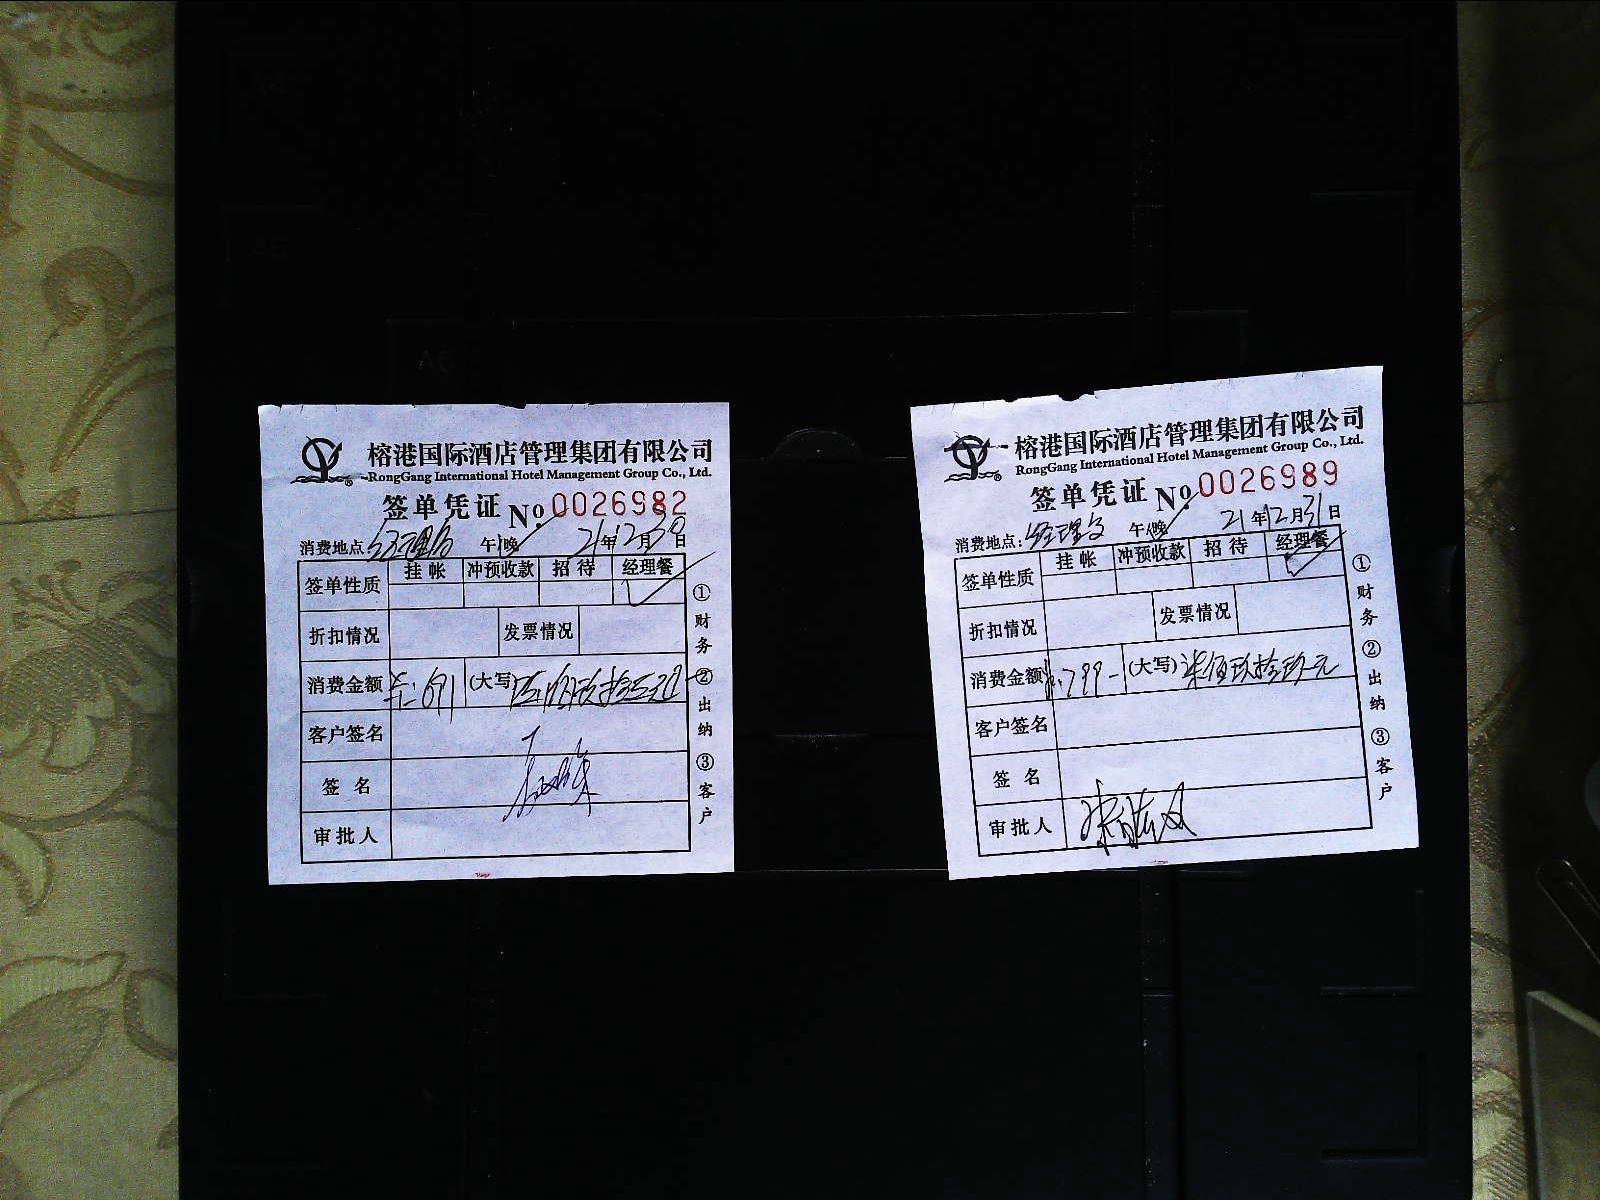 榕港国际酒店管理集团有限公司
RongGang International Hotel Management Group Co., Ltd.
签单凭证 No. 0026982
消费地点 午 晚 21年12月30日
签单性质 挂帐 冲预收款 招待 经理餐
折扣情况 发票情况
消费金额 (大写)
客户签名
签名
审批人
①财务 ②出纳 ③客户
榕港国际酒店管理集团有限公司
RongGang International Hotel Management Group Co., Ltd.
签单凭证 No. 0026989
消费地点: 经理 午 晚 21年12月31日
签单性质 挂帐 冲预收款 招待 经理餐
折扣情况 发票情况
消费金额 799- (大写) 柒佰玖拾玖元
客户签名
签名
审批人
①财务 ②出纳 ③客户
A6